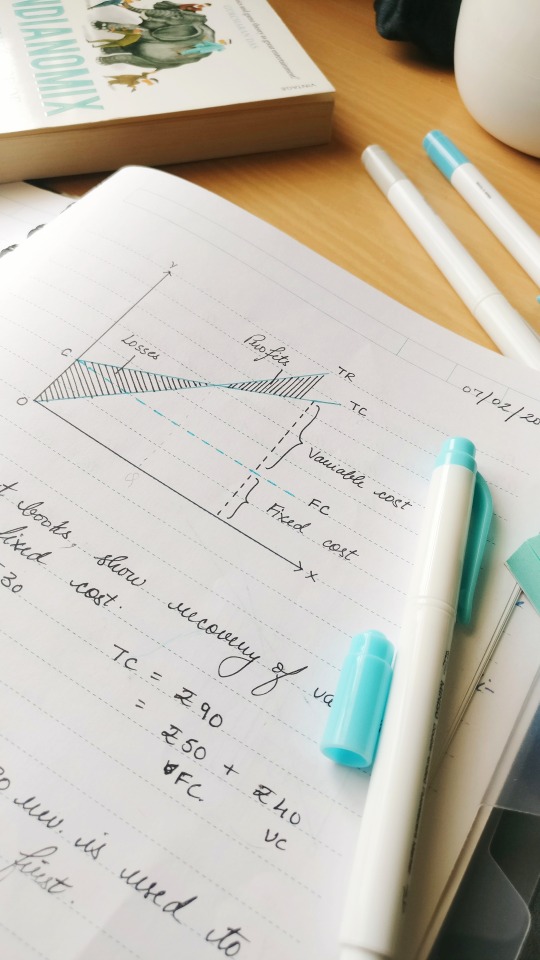 NDIANOMIX
VINTAGE
07/02/20
Y
C
Losses
Profits
TR
O
TC
Variable cost
FC
Fixed cost
X
t books, show recovery of va
fixed cost.
TC = ₹90
= ₹50 + ₹40
FC. VC
rev. is used to
first.